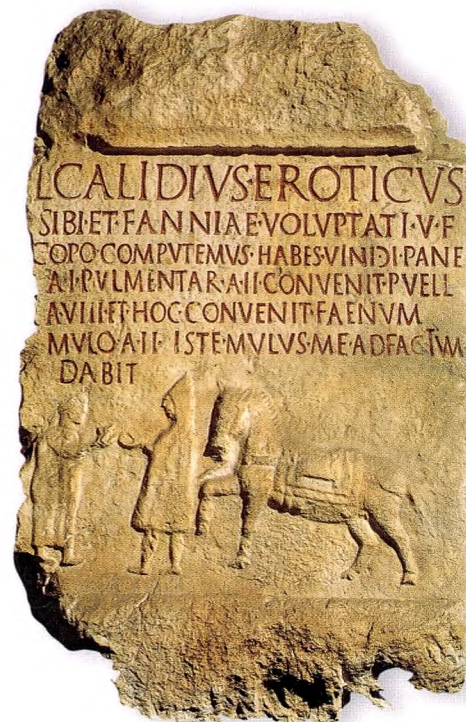 L·CALIDIVS·EROTICVS
SIBI·ET·FANNIAE·VOLVPTATI·V·F
COPO·COMPVTEMVS·HABES·VINI·)·I·PANE
A·I·PVLMENTAR·A·II·CONVENIT·PVELL
A·VIII·ET·HOC·CONVENIT·FAENVM
MVLO·A·II·ISTE·MVLVS·ME·AD·FACTVM
DABIT